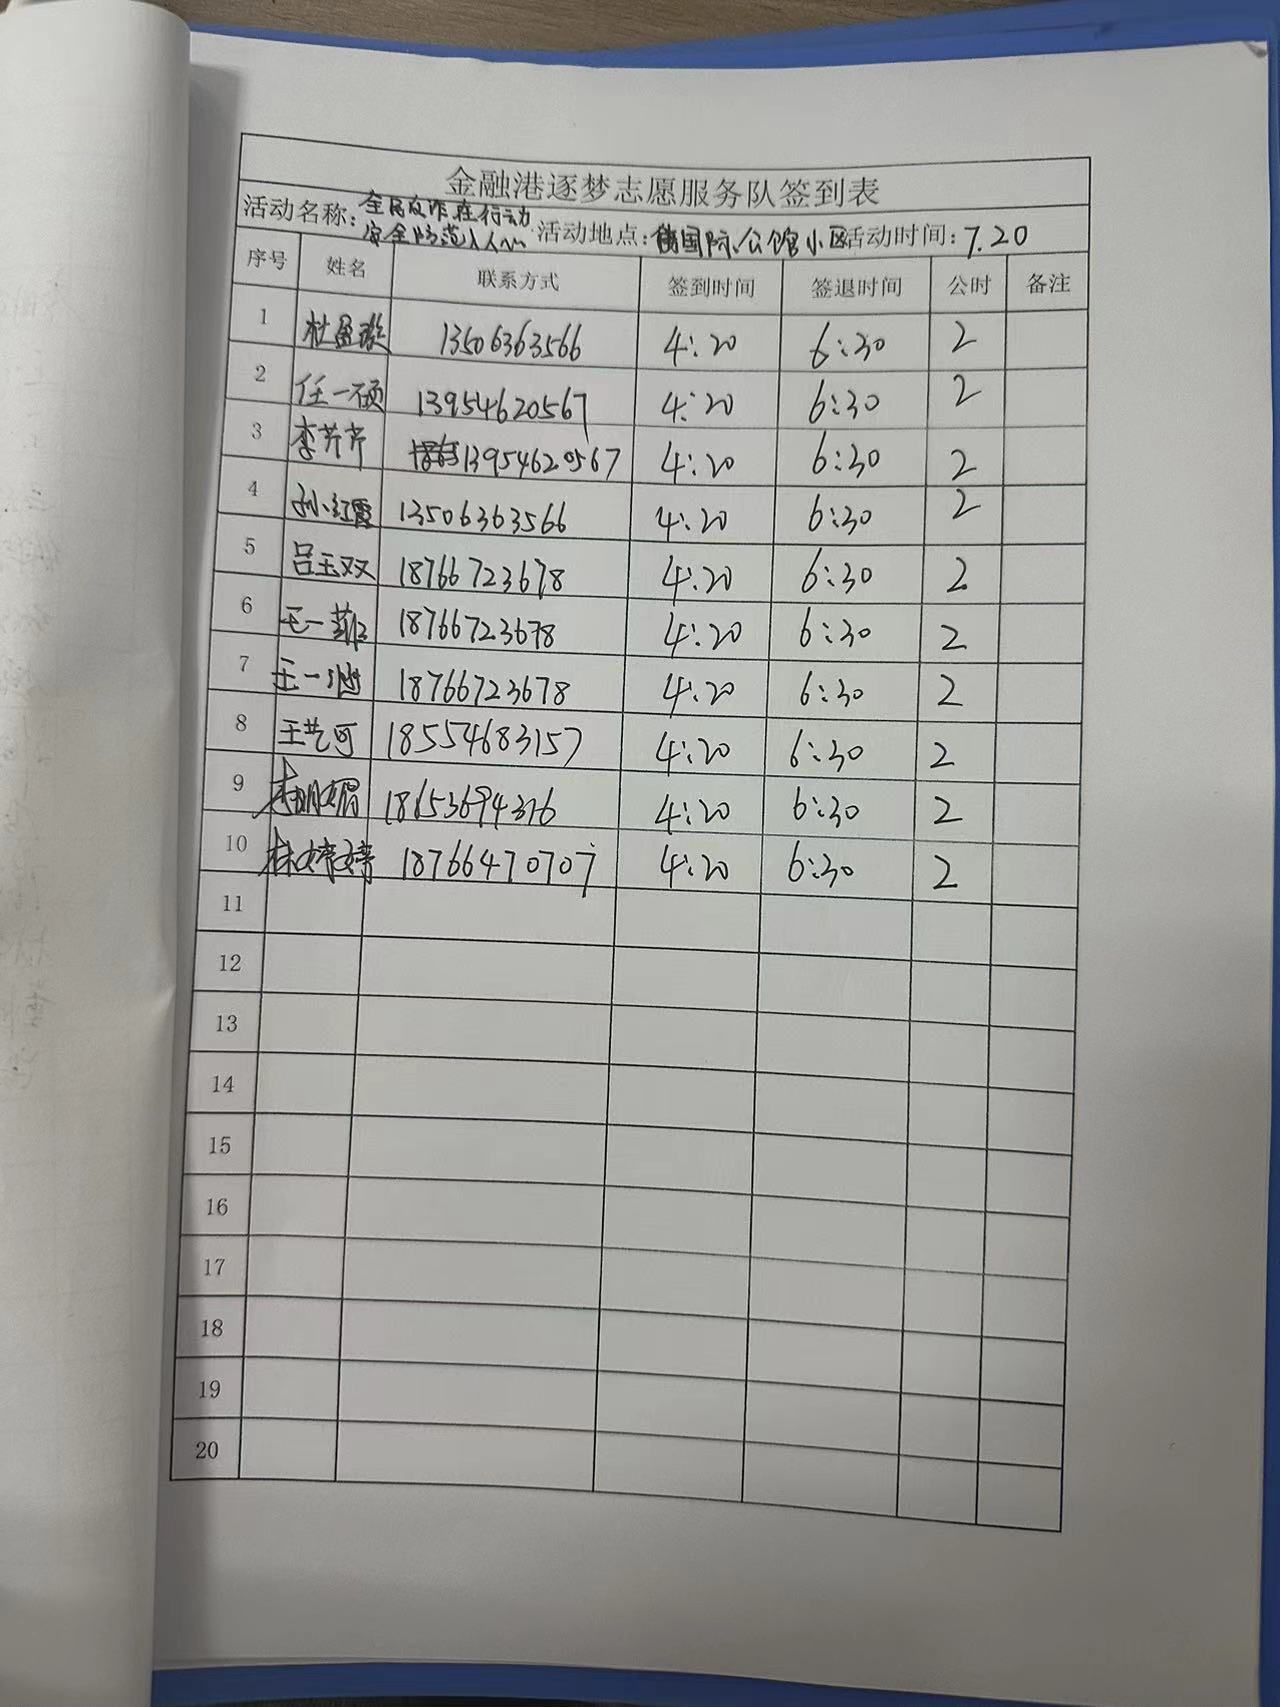 金融港逐梦志愿服务队签到表
活动名称：全民反诈在行动 安全防范人人 活动地点：国际公馆小区 活动时间：7.20
序号 姓名 联系方式 签到时间 签退时间 公时 备注
1 杜盈 13506363566 4:20 6:30 2
2 任一硕 13954620567 4:20 6:30 2
3 李芹芹 13954620567 4:20 6:30 2
4 孙红霞 13506363566 4:20 6:30 2
5 吕玉双 18766723678 4:20 6:30 2
6 王一菲 18766723678 4:20 6:30 2
7 王一 18766723678 4:20 6:30 2
8 王艺可 18554683157 4:20 6:30 2
9 李明媚 18653694316 4:20 6:30 2
10 林婷婷 18766470707 4:20 6:30 2
11
12
13
14
15
16
17
18
19
20